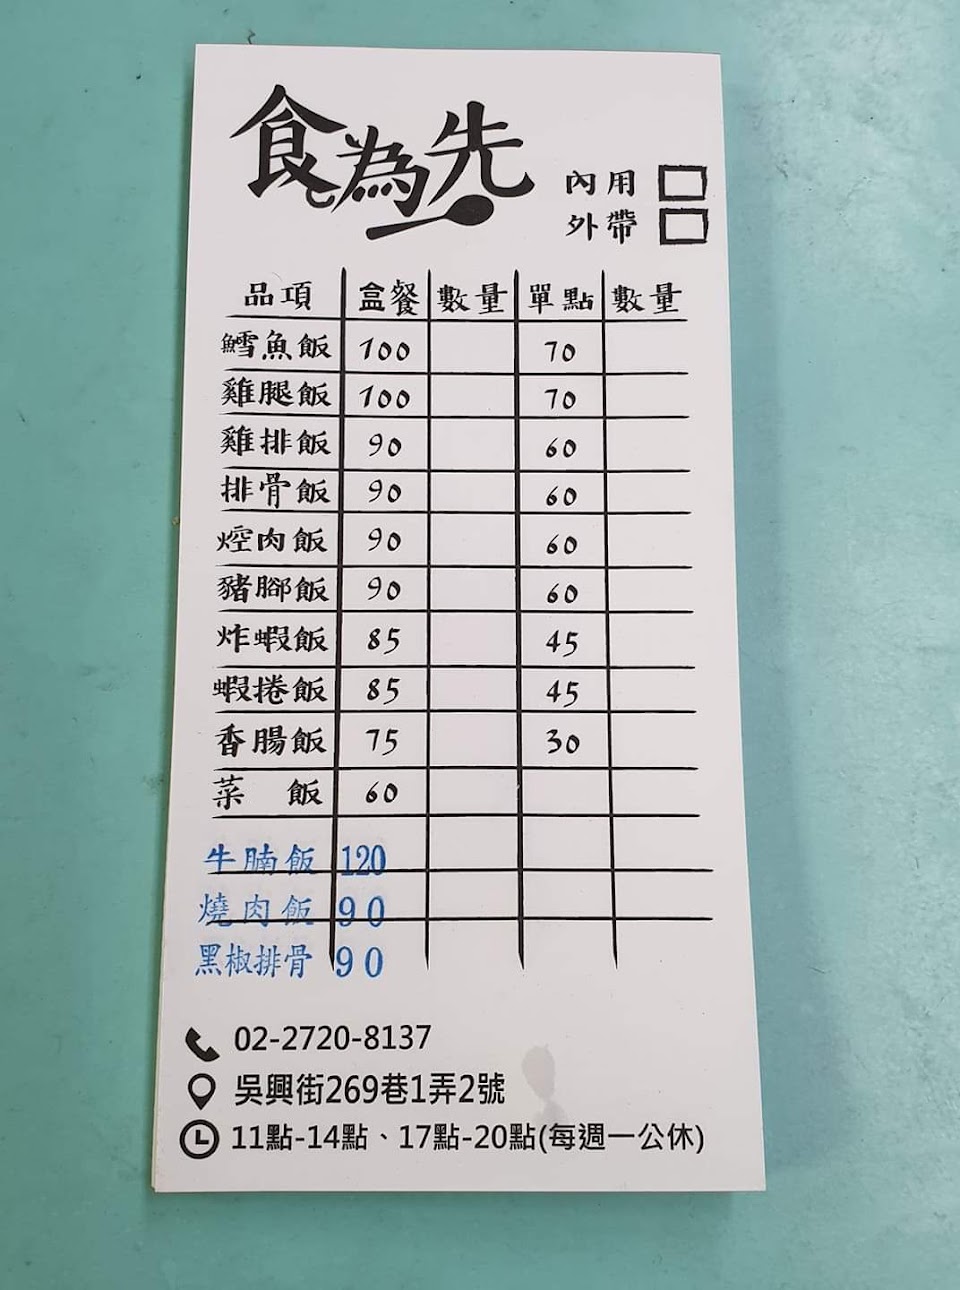 食為先
內用
外帶
品項 盒餐 數量 單點 數量
鱈魚飯 100 70
雞腿飯 100 70
雞排飯 90 60
排骨飯 90 60
焢肉飯 90 60
豬腳飯 90 60
炸蝦飯 85 45
蝦捲飯 85 45
香腸飯 75 30
菜飯 60
牛腩飯 120
燒肉飯 90
黑椒排骨 90
02-2720-8137
吳興街269巷1弄2號
11點-14點、17點-20點(每週一公休)